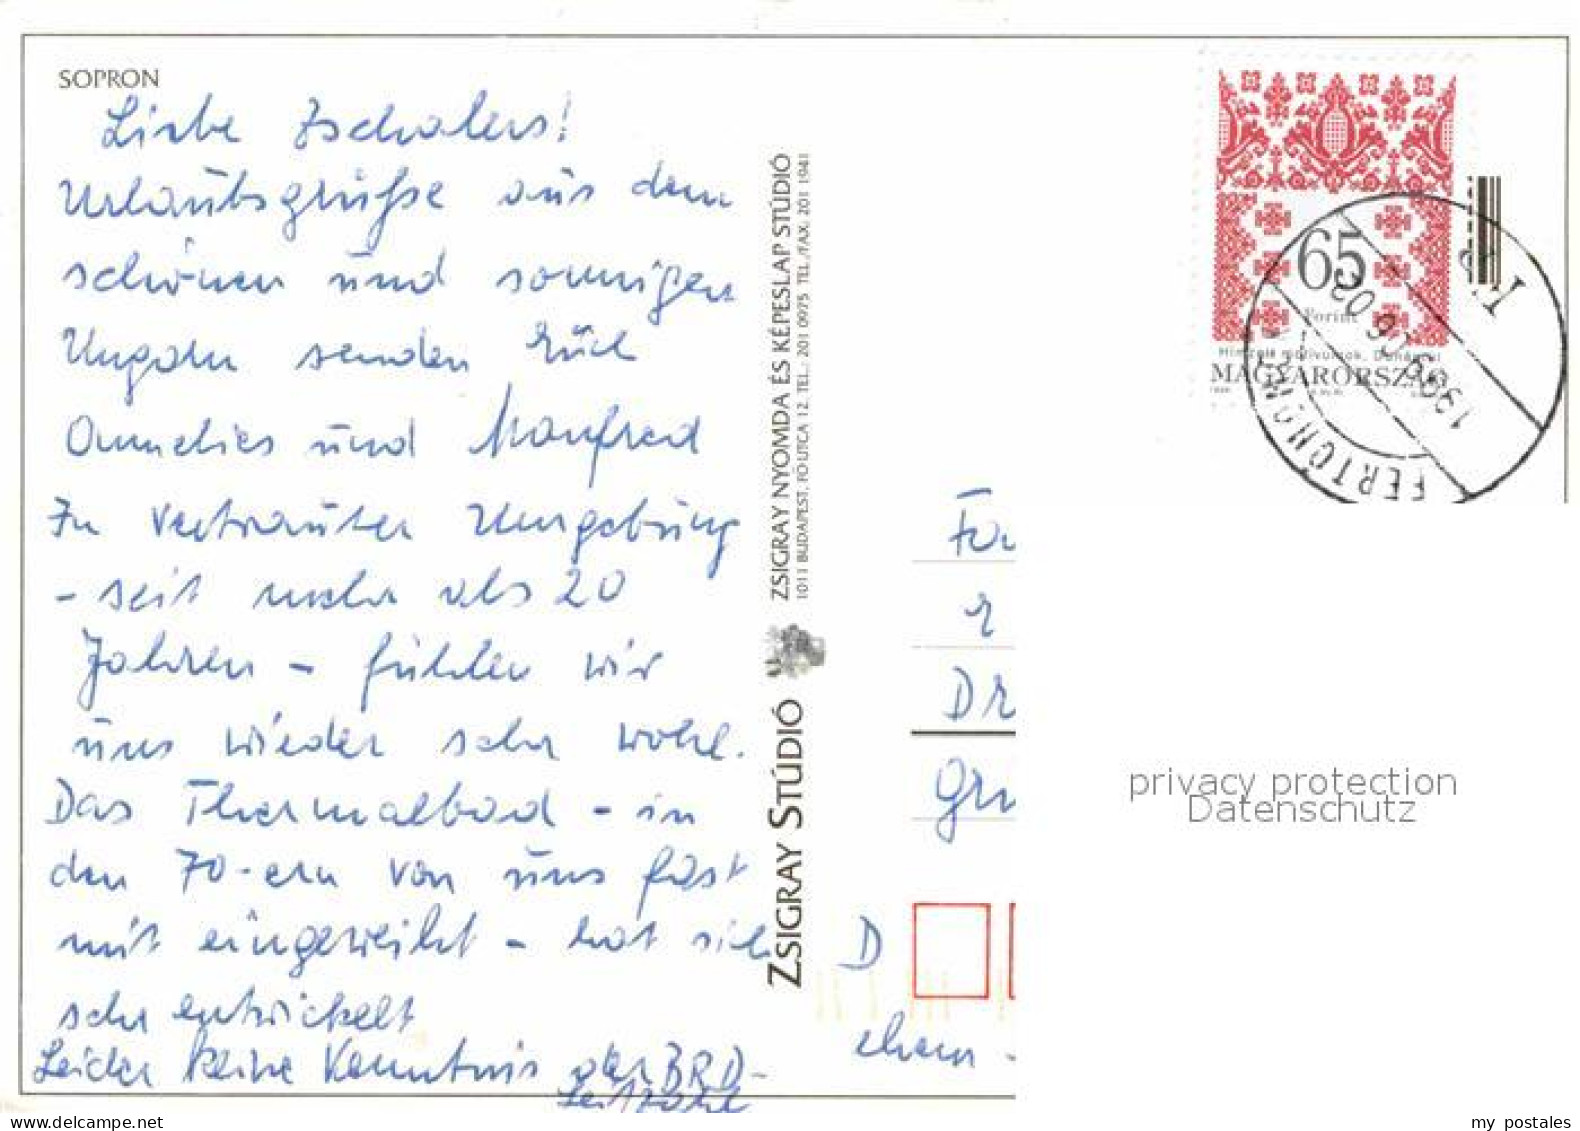 SOPRON
Liebe Zschalers!
Urlaubsgrüße aus dem
schönen und sonnigen
Ungarn senden Euch
Annelies und Manfred
In vertrauter Umgebung
- seit mehr als 20
Jahren - fühlen wir
uns wieder sehr wohl.
Das Thermalbad - in
den 70-ern von uns fast
mit eingeweiht - hat sich
sehr entwickelt
Leider keine Kenntnis der BRD-
Leitzahl
ZSIGRAY STÚDIÓ
ZSIGRAY NYOMDA ÉS KÉPESLAP STÚDIÓ
1011 BUDAPEST, FŐ UTCA 12. TEL.: 201 0975 TEL./FAX: 201 1941
65
Forint
Hímzett motívumok. Dunántúl
MAGYARORSZÁG
FERTŐHOMOK
D
ehem
privacy protection
Datenschutz
www.delcampe.net
my_postales